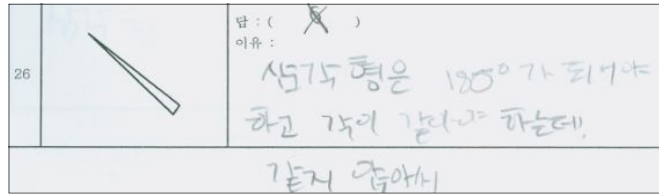 답 : ( X )
이유 :
26
삼각형은 180°가 되어야
하고 각이 같아야 하는데,
같지 않아서